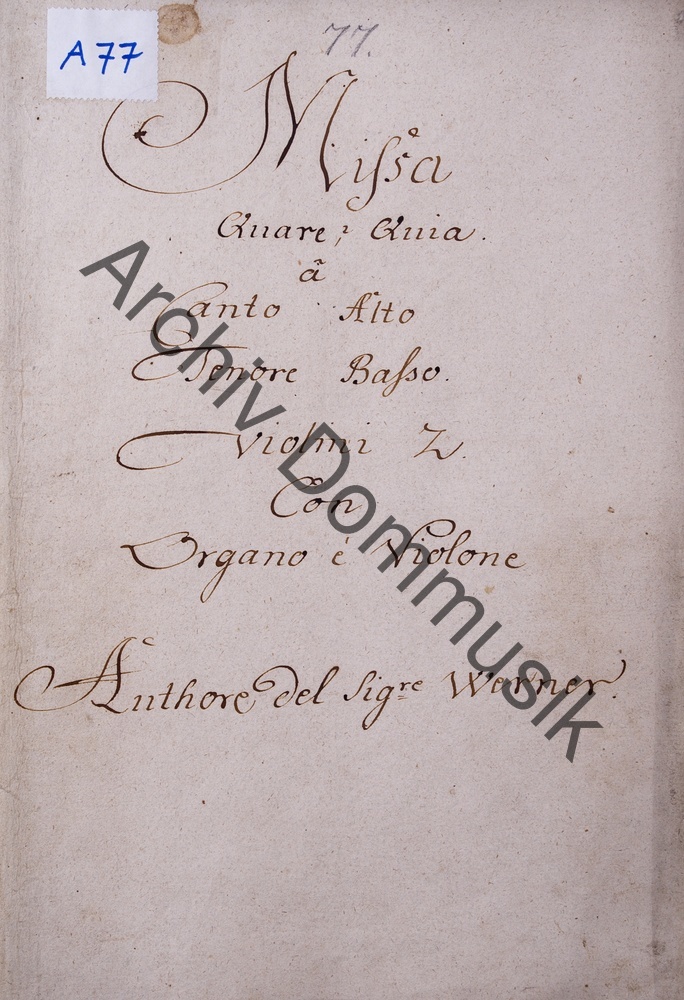 A 77
77.
Missa
Quare? Quia.
â
Canto Alto
Tenore Basso.
Violini 2.
Con
Organo è Violone
Authore del Sigre Werner.
Archiv Dommusik